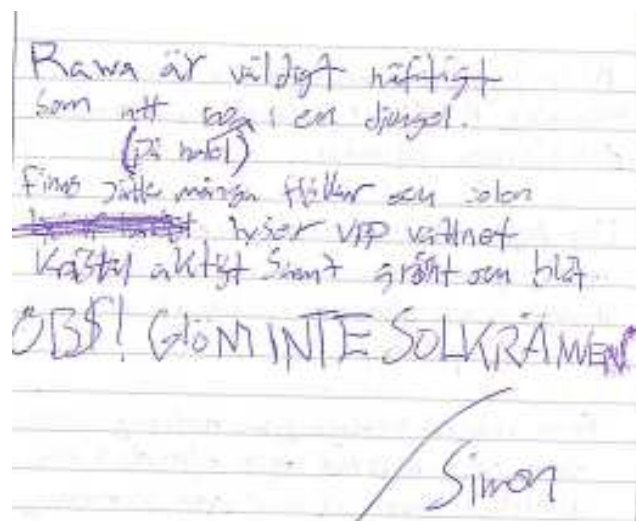 Rawa är väldigt häftigt
Som ett i en djungel.
(på hotel)
Finns jätte många fjällar och solen
lyser upp vattnet
Kristal aktigt Sånt grönt och blåt.
OBS! GlöM INTE SOLKRÄMEN
/Simon